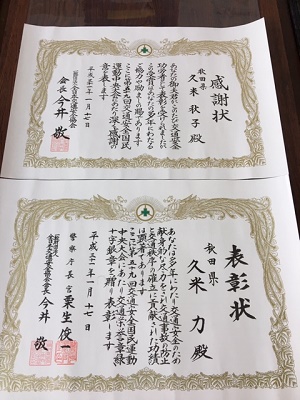 感謝状
秋田県
久米秋子 殿
あなたの御夫君がこのたび交通安全
功労者として表彰を受けられました
この栄誉はあなたの多年にわたる
ご協力や励ましの賜であります
ここに第五十九回交通安全国民
運動中央大会にあたり深く感謝の
意を表します
平成三十一年一月十七日
一般財団法人全日本交通安全協会
会長 今井 敬
表彰状
秋田県
久米 力 殿
あなたは多年にわたり交通安全のため
献身的な尽力をされ交通事故の防止
と交通秩序の確立に貢献された功績
は顕著であります
ここに第五十九回交通安全国民運動
中央大会にあたり交通栄誉章緑
十字銀章を贈り表彰します
平成三十一年一月十七日
警察庁長官 栗生俊一
一般財団法人全日本交通安全協会会長 今井 敬